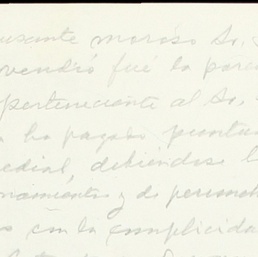 causante moroso Sr.
vendió fué la parce
perteneciente al Sr.
ha pagado puntua
edial, debiéndose l
namiento y de personal
con la complicida